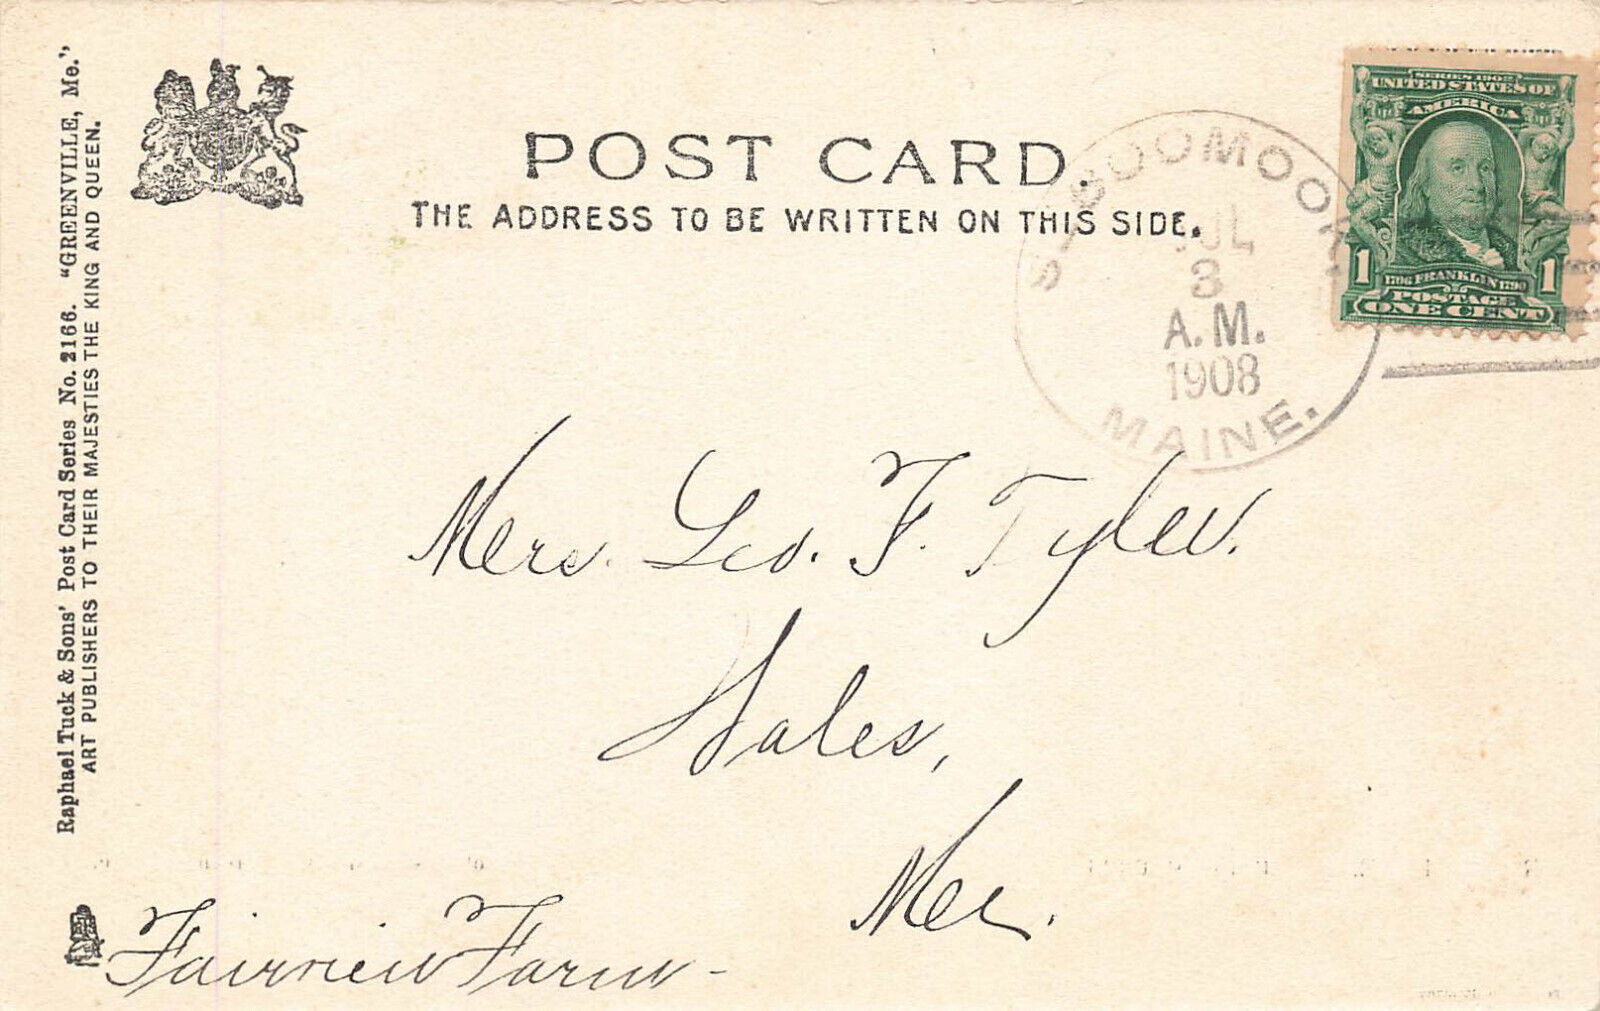 POST CARD.
THE ADDRESS TO BE WRITTEN ON THIS SIDE.
Raphael Tuck & Sons' Post Card Series No. 2166. "GREENVILLE, Me.",
ART PUBLISHERS TO THEIR MAJESTIES THE KING AND QUEEN.
JUL
3
A.M.
1908
MAINE.
SERIES 1902
UNITED STATES OF
AMERICA
1706 FRANKLIN 1790
1 1
POSTAGE
ONE CENT
Mrs. Geo. F. Tyler.
Wales,
Me.
Fairview Farm -